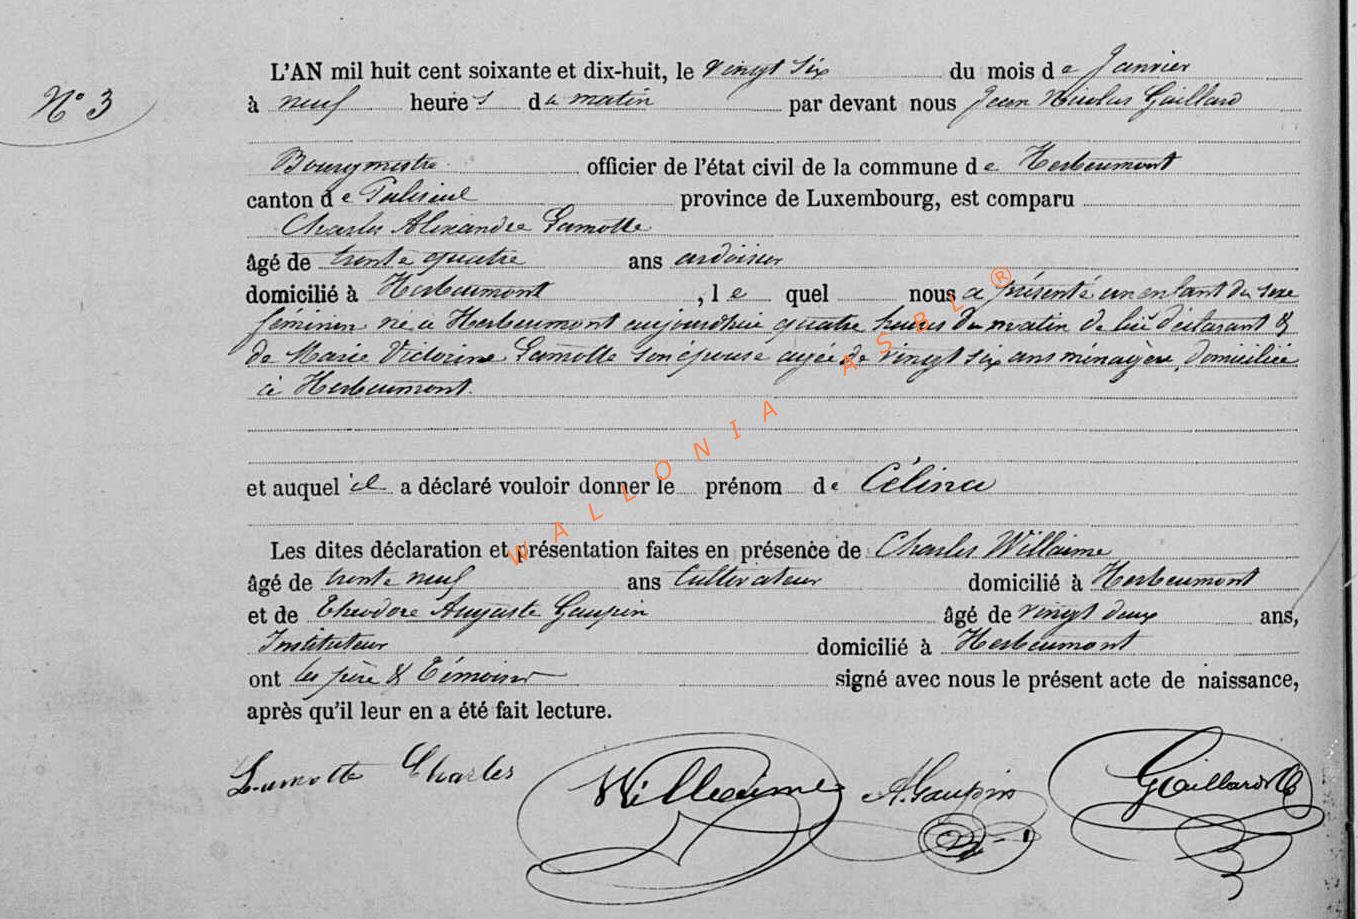 N° 3
L'AN mil huit cent soixante et dix-huit, le vingt six du mois de Janvier
à neuf heures du matin par devant nous Jean Nicolas Gaillard
Bourgmestre officier de l'état civil de la commune de Herbeumont
canton de Paliseul province de Luxembourg, est comparu
Charles Alexandre Lamotte
âgé de trente quatre ans ardoisier
domicilié à Herbeumont, le quel nous a présenté un enfant du sexe
féminin né à Herbeumont aujourdhui quatre heures du matin de lui déclarant &
de Marie Victorine Lamotte son épouse agée de vingt six ans ménagère, domiciliée
à Herbeumont.
et auquel il a déclaré vouloir donner le prénom de Célina
Les dites déclaration et présentation faites en présence de Charles Willaime
âgé de trente neuf ans Cultivateur domicilié à Herbeumont
et de Théodore Auguste Gaupin âgé de vingt deux ans,
Instituteur domicilié à Herbeumont
ont les père & Témoins signé avec nous le présent acte de naissance,
après qu'il leur en a été fait lecture.
Lamotte Charles Willaime A. Gaupin Gaillard
WALLONIA ASBL ®